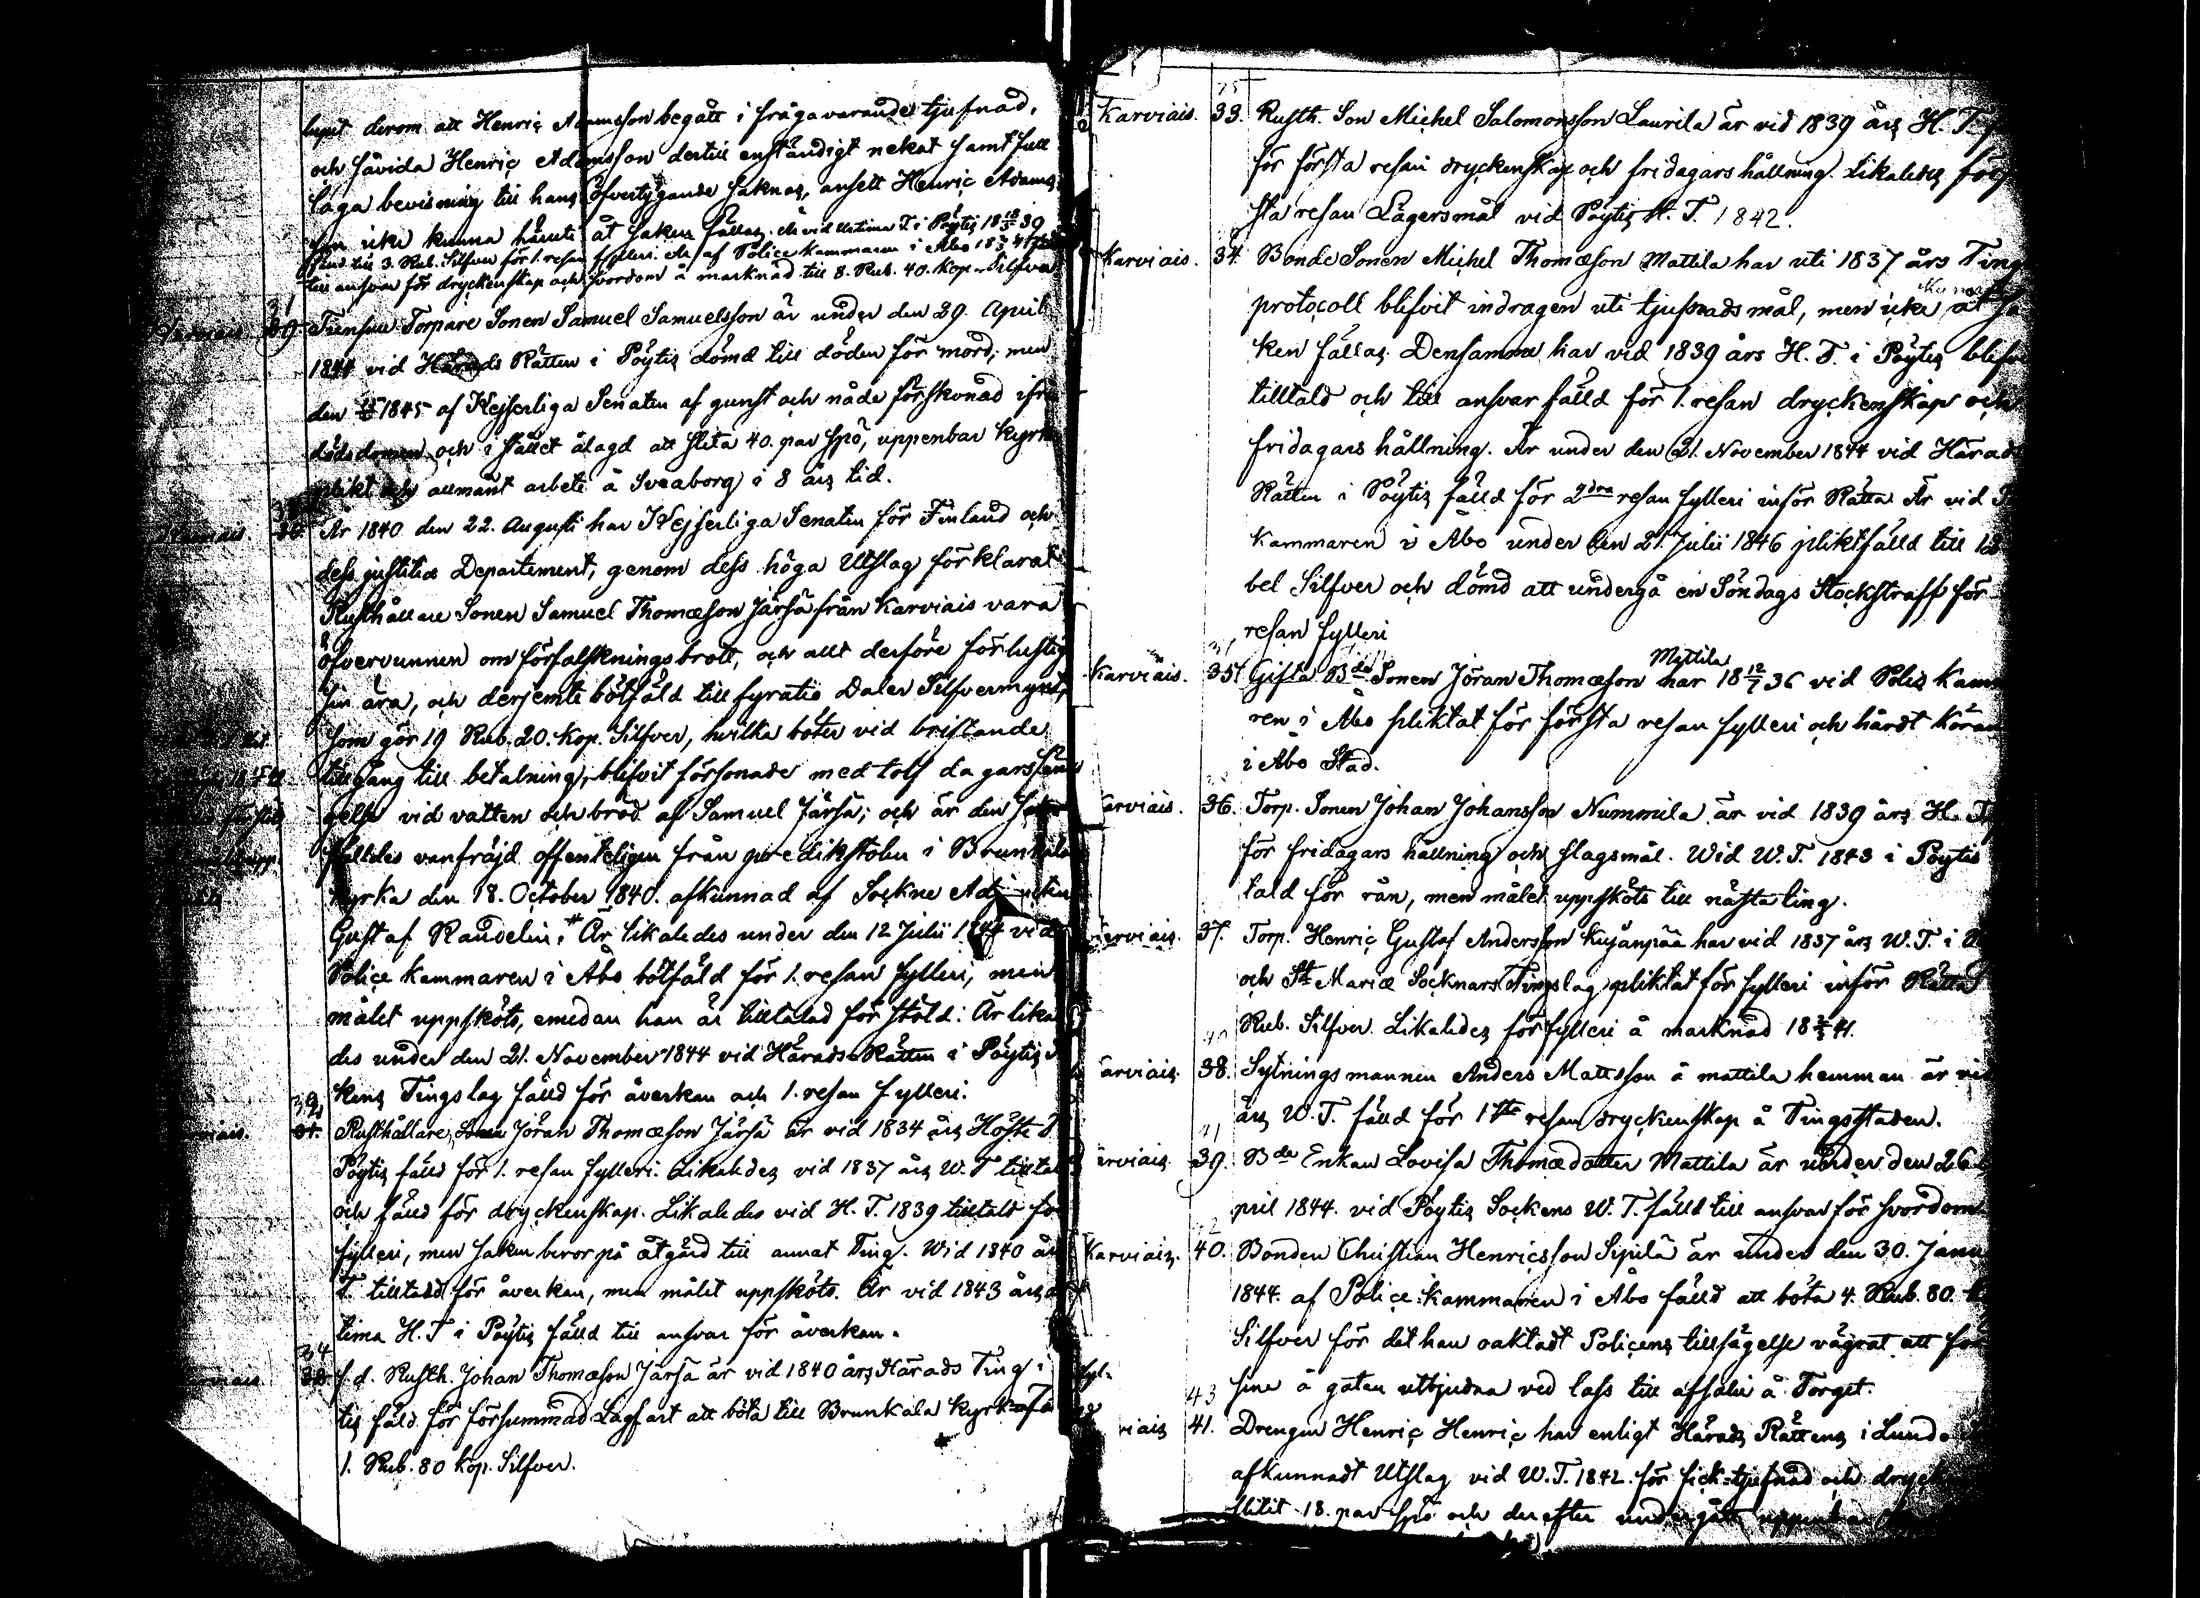 derom att Henric Adamsson begått i frågavarande tjufnad,
och såvida Henric Adamsson dertill enständigt nekat samt full
laga bevisning till hans öfvertygande saknas, ansett Henric Adams
son icke kunna häruti åt saken fällas. Är vid Urtima T. i Pöytis 18 39
till 3. Rub. Silfver för 1. resan fylleri. Är af Police Kammaren i Åbo
till ansvar för dryckenskap och svordom å marknad till 8. Rub. 40. Kop. Silfver
31
29. Torpare Sonen Samuel Samuelsson är under den 29. April
1844 vid Härads Rätten i Pöytis dömd till döden för mord, men
den 1845 af Kejserliga Senaten af gunst och nåde förskonad ifrån
dödsdomen och i stället ålagd att slita 40. par spö, uppenbar kyrko
plikt och allmänt arbete å Sveaborg i 8 års tid.
År 1840 den 22. Augusti har Kejserliga Senaten för Finland och
dess justitiæ Departement, genom dess höga Utslag förklarat
Rusthållare Sonen Samuel Thomæson Järsä från Karviais vara
öfvervunnen om förfalsknings brott, och allt derföre förlustig
sin ära, och derjemte bötfäld till fyratio Daler Silfvermynt,
som gör 19 Rub. 20. Kop. Silfver, hvilka böter vid bristande
tillgång till betalning, blifvit försonade med tolf dagars fän
gelse vid vatten och bröd af Samuel Järsä; och är den
vanfräjd offenteligen från predikstolen i Brunkala
kyrka den 18. October 1840. afkunnad af Sockne Adjuncten
Gustaf Randelin. # Är likaledes under den 12 Julii 1844 vid
Police kammaren i Åbo bötfäld för 1. resan fylleri, men
målet uppsköts, emedan han är tilltalad för stöld. Är lika
des under den 21. November 1844 vid Härads Rätten i Pöytis
kens Tingslag fälld för åverkan och 1. resan fylleri.
Rusthållare Sonen Jöran Thomæson Järsä är vid 1834 års Höste T.
Pöytis fälld för 1. resan fylleri. Likaledes vid 1837 års W. T tilltal
och fälld för dryckenskap. Likaledes vid H. T. 1839 tilltald för
fylleri, men saken beror på åtgärd till annat Ting. Wid 1840 års
T. tilltald för åverkan, men målet uppsköts. Är vid 1843 års
tima H. T i Pöytis fälld till ansvar för åverkan.
34
f. d. Rusth. Johan Thomæson Järsä är vid 1840 års Härads Ting i
tis fäld för försummad Lagfart att böta till Brunkala kyrka
1. Rub. 80 kop. Silfver.
Karviais. 33. Rusth. Son Michel Salomonsson Laurila är vid 1839 års H. T.
för första resan dryckenskap och fridagars hållning. Likaledes för
sta resan Lägersmål vid Pöytis H. T. 1842.
Karviais. 34. Bonde Sonen Michel Thomæson Mattila har uti 1837 års Tings
protocoll blifvit indragen uti tjufnads mål, men icke åt sa
ken fällas. Densamme har vid 1839 års H. T. i Pöytis blifvit
tilltald och till ansvar fälld för 1. resan dryckenskap och
fridagars hållning. Är under den 21. November 1844 vid Härads
Rätten i Pöytis fälld för 2dra resan fylleri inför Rätta Är vid
Kammaren i Åbo under den 21. Julii 1846 pliktfälld till
bel Silfver och dömd att undergå en Söndags Stockstraff för
resan fylleri
Karviais. 35. Gifta Bde Sonen Jöran Thomæson Mattila har 18 12/7 36 vid Polis Kamma
ren i Åbo pliktat för första resan fylleri och hårdt köran
i Åbo Stad.
arviais. 36. Torp. Sonen Johan Johansson Nummila är vid 1839 års H. T
för fridagars hållning och slagsmål. Wid W. T. 1843 i Pöytis
tald för rån, men målet uppsköts till nästa ting.
arviais. 37. Torp. Henric Gustaf Andersson Kujanpää har vid 1837 års W. T. i
och St. Mariæ Socknars Tingslag pliktat för fylleri inför Rätta
Rub. Silfver. Likaledes för fylleri å marknad 18 41.
40
arviais. 38. Sytningsmannen Anders Mattsson å mattila hemman är vid
års W. T. fälld för 1sta resan dryckenskap å Tingsstaden.
41
arviais. 39. Bde Enkan Lovisa Thomædotter Mattila är under den 26
pril 1844. vid Pöytis Sockens W. T. fälld till ansvar för svordom
42
Karviais. 40. Bonden Christian Henricsson Sipilä är under den 30. Janu
1844. af Police kammaren i Åbo fälld att böta 4. Rub. 80.
Silfver för det han oaktadt Policens tillsägelse vägrat att för
sine å gatan utbjudna ved lass till afsalu å Torget.
43
viais 41. Drengen Henric Henric har enligt Härads Rättens i Lundo
afkunnadt Utslag vid W. T. 1842. för fick tjufnad och dryck
slitit 18. par spö och derefter undergått uppenbar